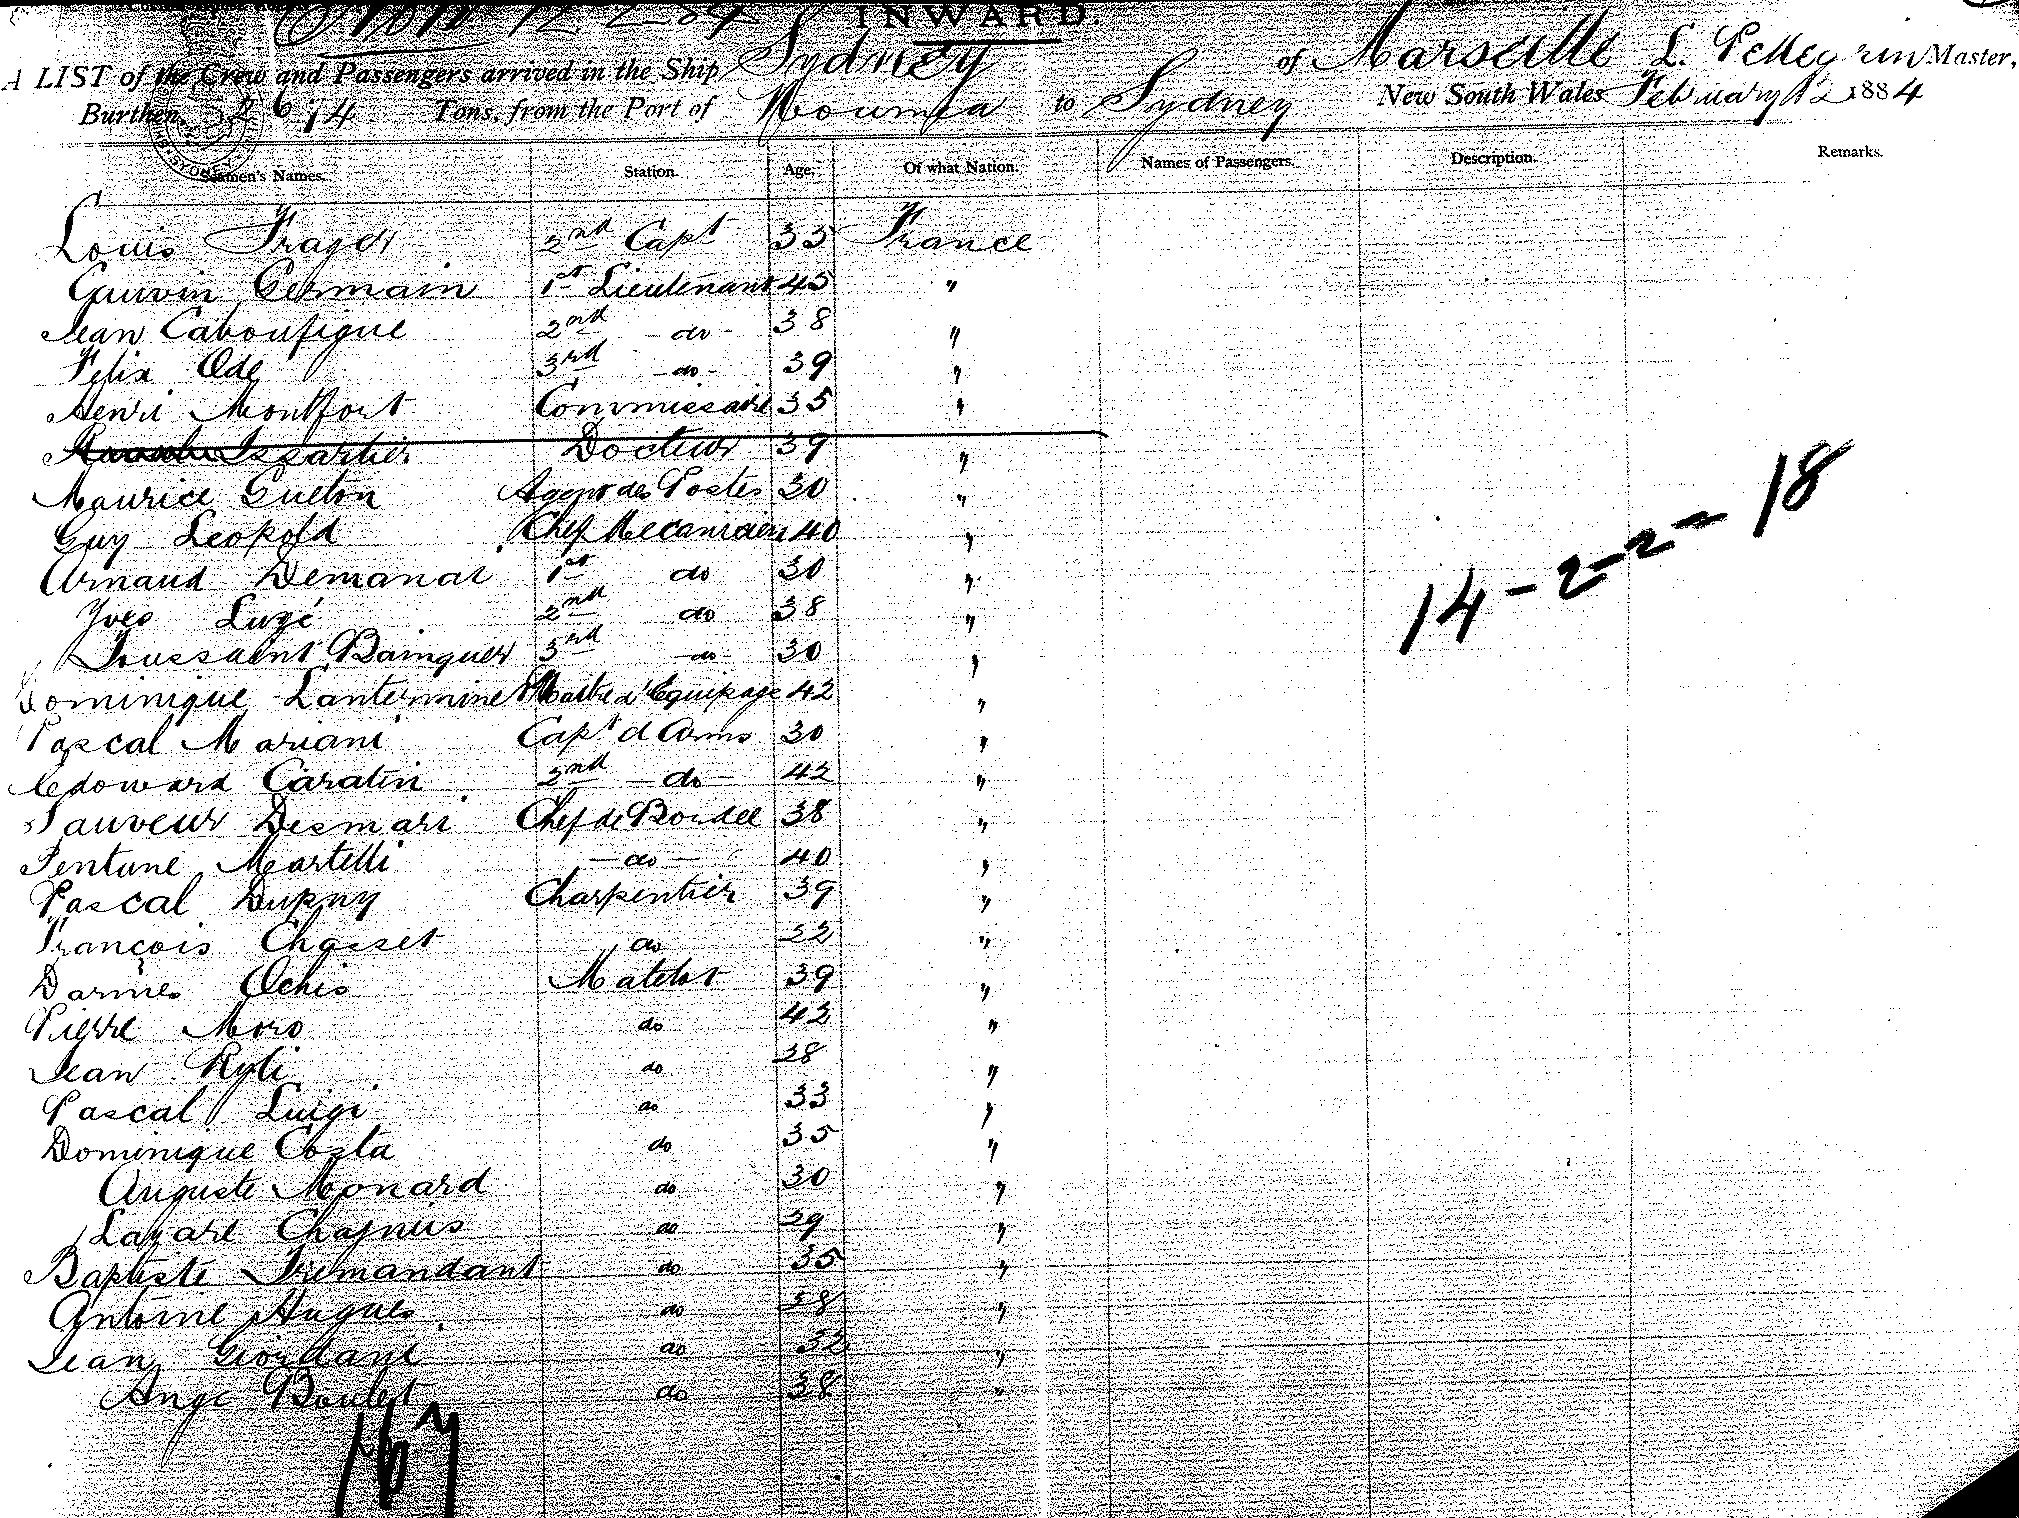 12-2-84 INWARD.
A LIST of the Crew and Passengers arrived in the Ship Sydney of Marseille L. Pellegrin Master,
Burthen, 2614 Tons, from the Port of Noumea to Sydney New South Wales February 12 1884
Seamen's Names. Station. Age. Of what Nation. Names of Passengers. Description. Remarks.
Louis 2nd Capt 33 France
Gauvin Germain 1st Lieutenant 45 "
Jean Caboufigue 2nd do 38 "
Felix Ode 3rd do 39 "
Henri Montfort Commissaire 35 "
Issartier Docteur 39 "
Maurice Gueton Agent des Postes 30 "
Guy Leopold Chef Mecanicien 40 "
Arnaud Demanai 1st do 30 "
Yves Lugé 2nd do 38 "
Toussaint Bainguer 3rd do 30 "
Dominique Lantermine Maitre d'Equipage 42 "
Pascal Mariani Capt d Arms 30 "
Edouard Caratin 2nd do 42 "
Sauveur Desmari Chef de Bordee 38 "
Martelli do 40 "
Pascal Dupuy Charpentier 39 "
François Chasset do 32 "
Darmes Ochis Matelot 39 "
Pierre Moro do 42 "
Jean Ryli do 38 "
Pascal Luigi do 33 "
Dominique Costa do 35 "
Auguste Monard do 30 "
Lazare Chapuis do 29 "
Baptiste Tremandant do 35 "
Antoine Hugues do 38 "
Jean Giordani do 32 "
Ange Boulet do 38 "
14-2-2-18
167